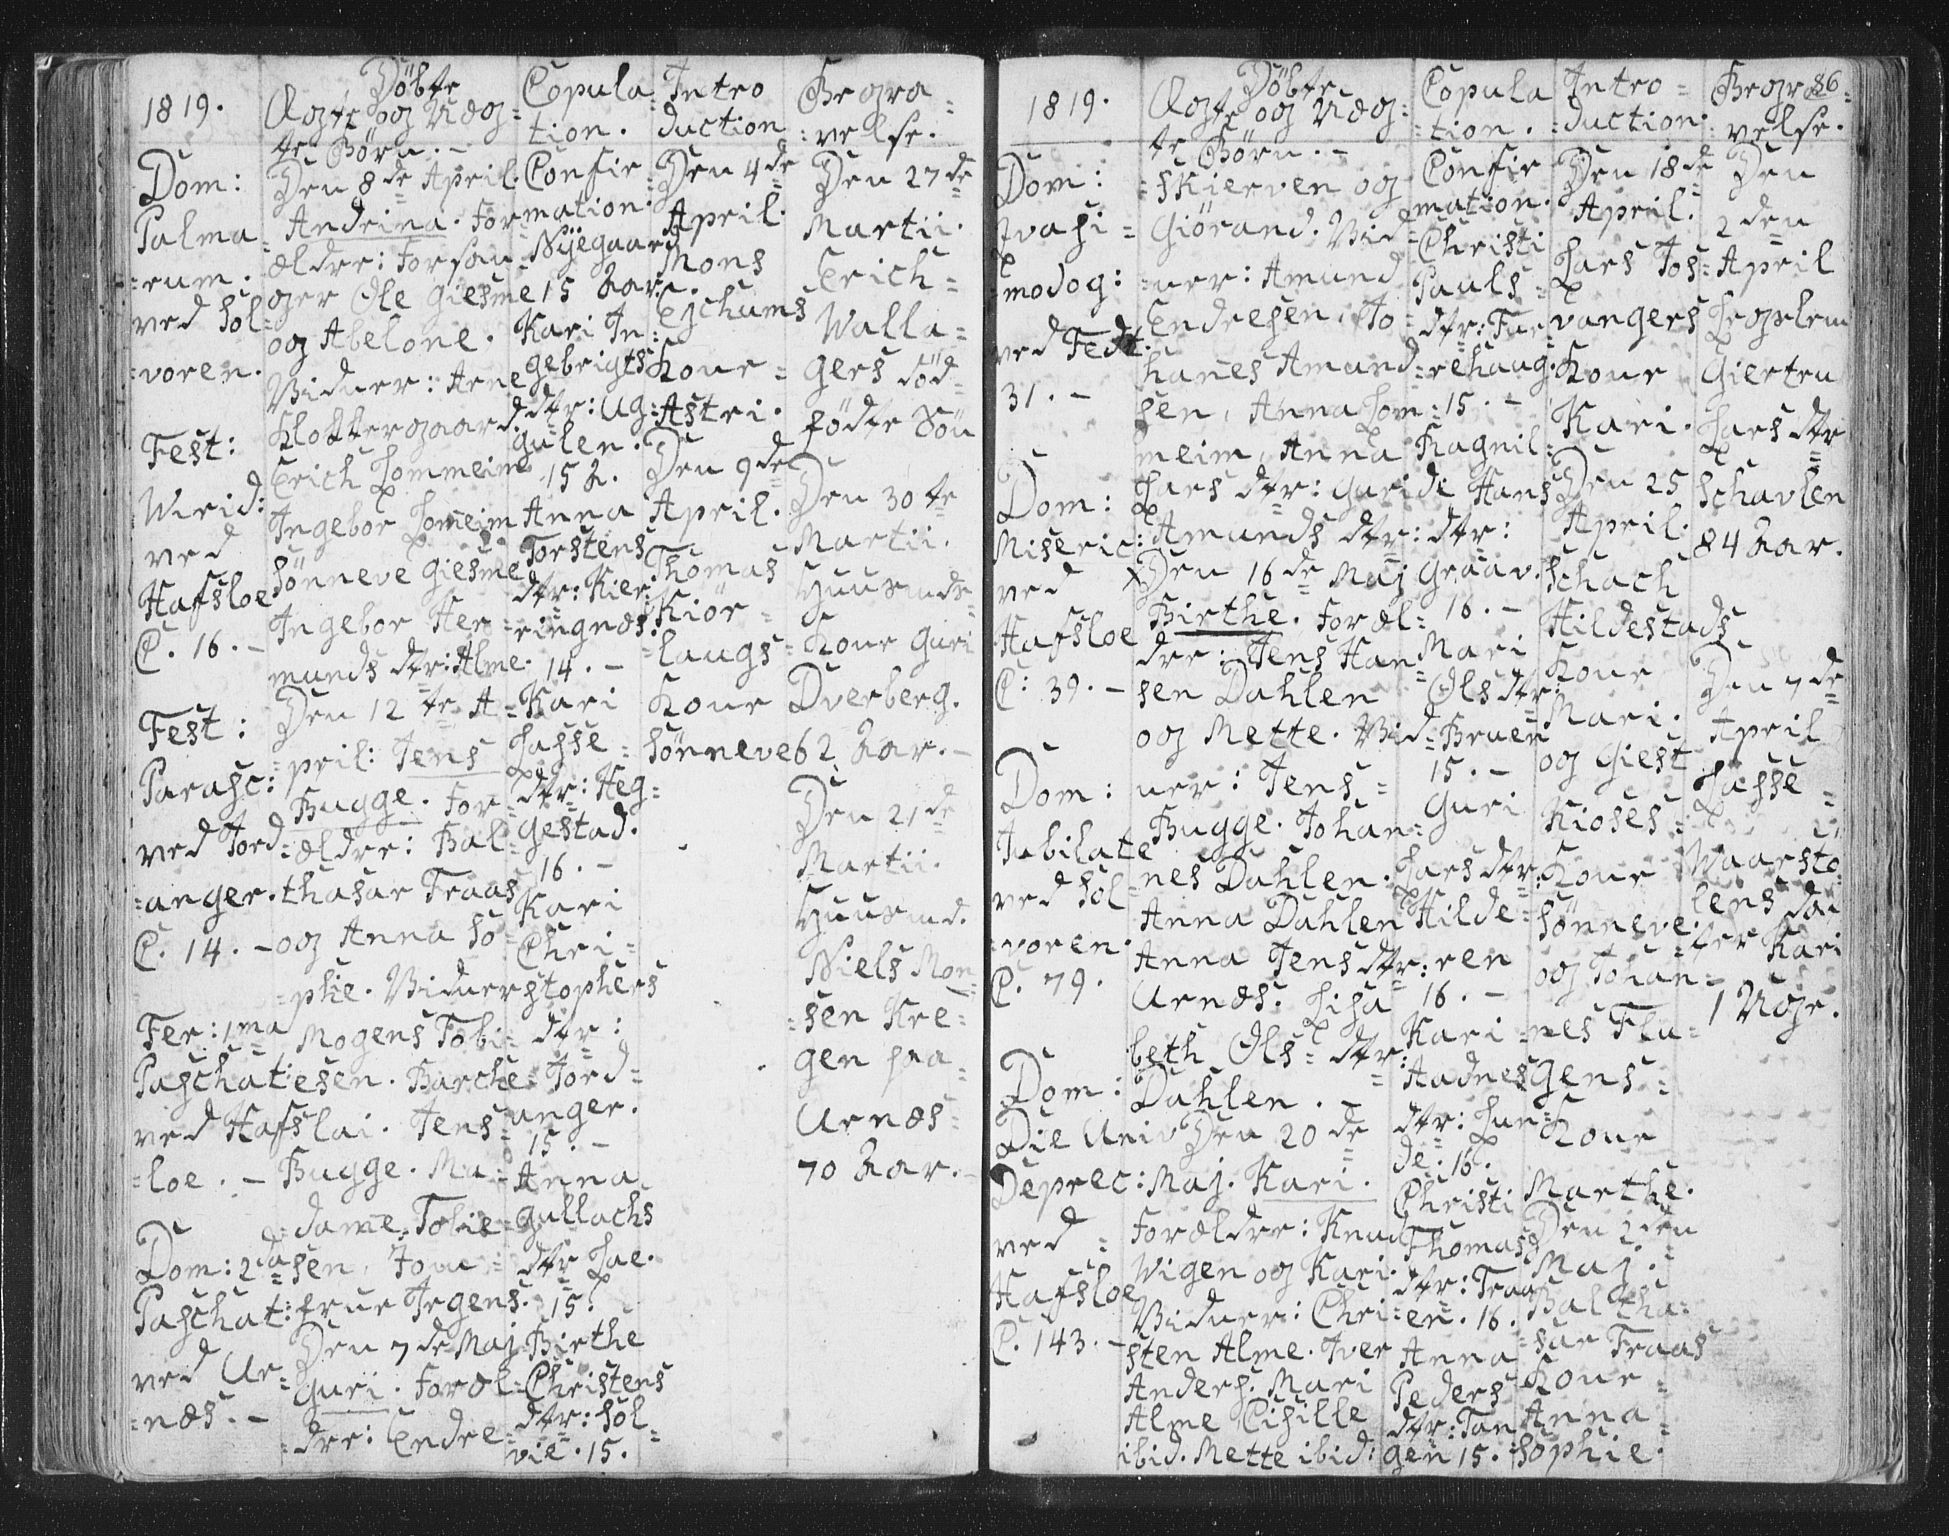 1819.
Döbte
Ægte og Uæg=
te Börn. -
Copula=
tion.
Intro
duction
Begra=
velse.
Dom:
Palma=
=rum.
ved Sol=
=voren.
Fest:
Virid:
ved
Hafsloe
C. 16. -
Fest:
Parasc:
ved Jord=
=anger.
C. 14. -
Fer: 1ma
Paschat:
ved Hafs
=loe. -
Dom: 2da
Paschat:
ved Ur=
=næs. -
Den 8de April.
Andrina. For
ældre: Forsan
ger Ole Giesme
og Abelone.
Vidner: Arne
Klokkergaard.
Erich Lommeim
Ingebor Lom̄eim
Sönneve Giesme
Ingebor Her=
munds dtr: Alme.
Den 12te A=
=pril: Jens
Bugge. For=
=ældre: Bal=
thasar Traas
og Anna So=
=phie. Vidner
Mogens Tobi=
esen. Barche
lai. Jens
Bugge. Ma=
=dame Tobie=
=sen, Jom=
frue Irgens.
Den 7de Maj
Guri. Foræl=
=dre: Endre
Confir=
mation.
Nÿegaard
15 Aar.
Kari In=
gebrigts
dtr: Ug=
gulen.
15 A.
Anna
Torstens
dtr: Kier=
ringnæs.
14. -
Kari
Lasse=
dtr: Heg=
gestad.
16. -
Kari
Chri=
stophers
dtr:
Jord=
anger.
15. -
Anna
Gullachs
dtr Lae.
15.
Birthe
Christens
dtr: Sol=
vie. 15.
Den 4de
April.
Mons
Ejchums
Kone=
Astri.
Den 9de
April.
Thomas
Kiör=
=laugs=
Kone
Sönneve
Den 27de
Martii.
Erich=
Walla=
gers död=
födte Sön
Den 30te
Martii.
Huusmds=
Kone Guri
Dverberg.
62 Aar. -
Den 21de
Martii.
Huusmd.
Niels Mon=
=sen Kre=
gen paa=
Urnæs=
70 Aar. -
1819.
Döbte
Ægte og Uæg=
te Börn. -
Copula
=tion.
Intro=
=duction.
Begra=
velse.
86
Dom:
Qvasi=
=modog:
ved Fedt.
31. -
Dom:
Miseric:
ved
Hafsloe
C: 39. -
Dom:
Jubilate
ved Sol=
=voren.
C. 79.
Dom:
Die Univ
Deprec:
ved=
Hafsloe
C. 143. -
=skierven og
Giörand. Vid=
=ner: Amund
Endresen, Jo=
hanes Amund=
sen, Anna Lom=
meim, Anna
Lars dtr: Guri
Amunds dtr:
Den 16de Maj
Birthe. Foræl=
dre: Jens Han=
sen Dahlen
og Mette. Vid=
ner: Jens=
Bugge. Johan=
nes Dahlen.
Anna Dahlen
Anna Jens dtr:
Urnæs. Lisa
beth Ols= dtr:
Dahlen. -
Den 20de
Maj. Kari.
Forældre: Knud
Wigen og Kari.
Vidner: Chri=
sten Alme. Iver
Anders. Mari
Alme Cisille
ibid. Mette ibid:
Confir=
mation.
Christi
Pauls=
dtr: Fur=
=rehaug.
15. -
Ragnil=
de Hans
dtr:
Graav.
16. -
Mari
Ols dtr:
Bruen
15. -
Guri
Lars dtr:
Hilde=
ren
16. -
Kari
Hadnes
dtr: Lun=
de. 16.
Christi
Thomas
dtr: Traa
en. 16.
Anna
Peders
dtr: Tan
gen 15.
Den 18de
April.
Lars Jos=
vangers
Kone
Kari.
Den 25
April.
Schach
Hildestads
Kone
Mari.
og Giest
Kioses=
Kone
Sönneve.
og Johan=
=nes Flu=
gens=
Kone
Marthe.
Den 2den
Maj.
Baltha=
=sar Traas
Kone=
Anna=
Sophie.
Den
2den
April
Giertru
Lars dtr
Schavlen
84 Aar.
Den 7de
April
Lasse=
Waarstö
lens dat
ter Kari
1 Uge.